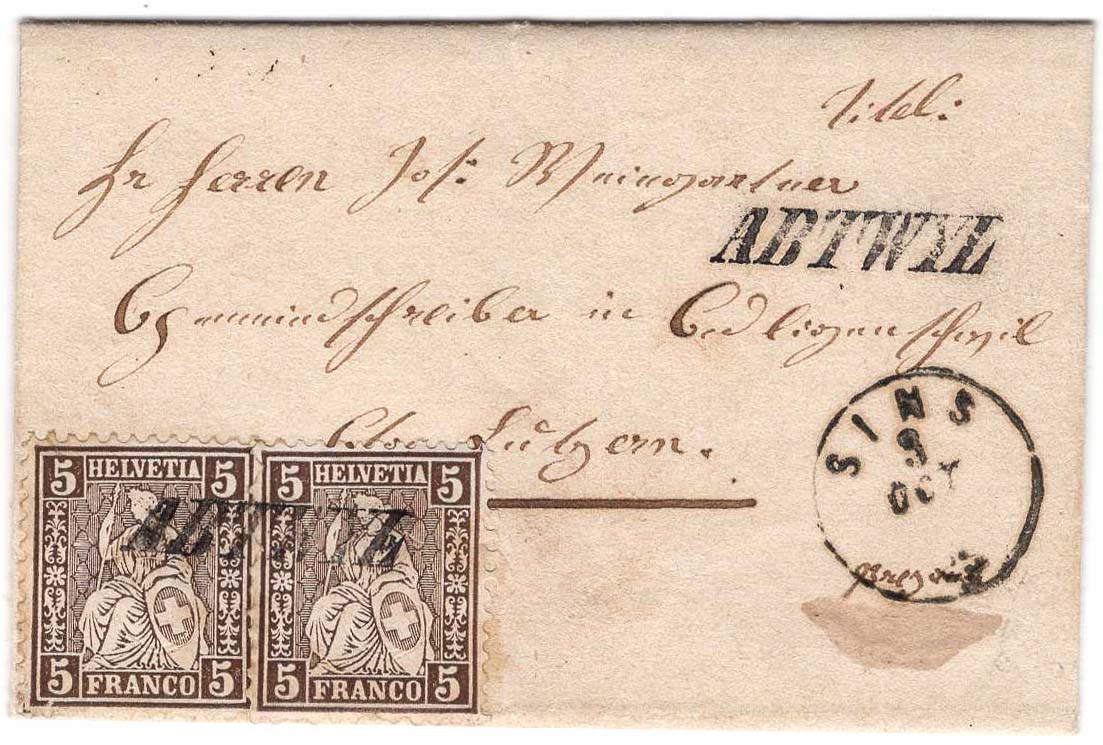 Titel:
Hr Herren Jos: Weingartner
ABTWYL
Gemeindschreiber in Adligenschwil
Cton Luzern.
SINS
9
OCT
5 HELVETIA 5
ABTWYL
5 FRANCO 5
5 HELVETIA 5
5 FRANCO 5